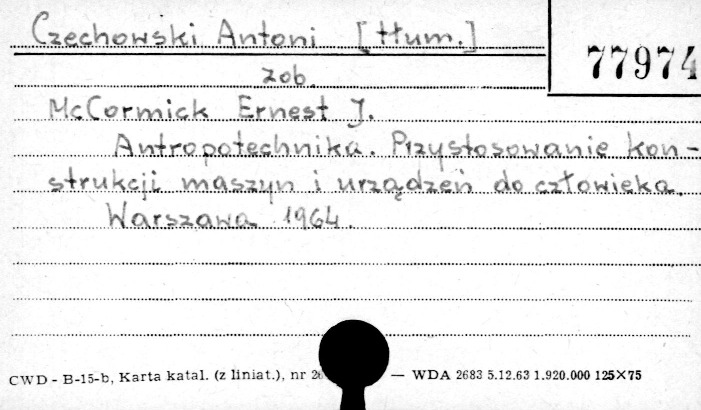 Czechowski Antoni [tłum.]
77974
zob.
McCormick Ernest J.
Antropotechnika. Przystosowanie kon-
strukcji maszyn i urządzeń do człowieka.
Warszawa 1964.
CWD - B-15-b, Karta katal. (z liniat.), nr — WDA 2683 5.12.63 1.920.000 125×75